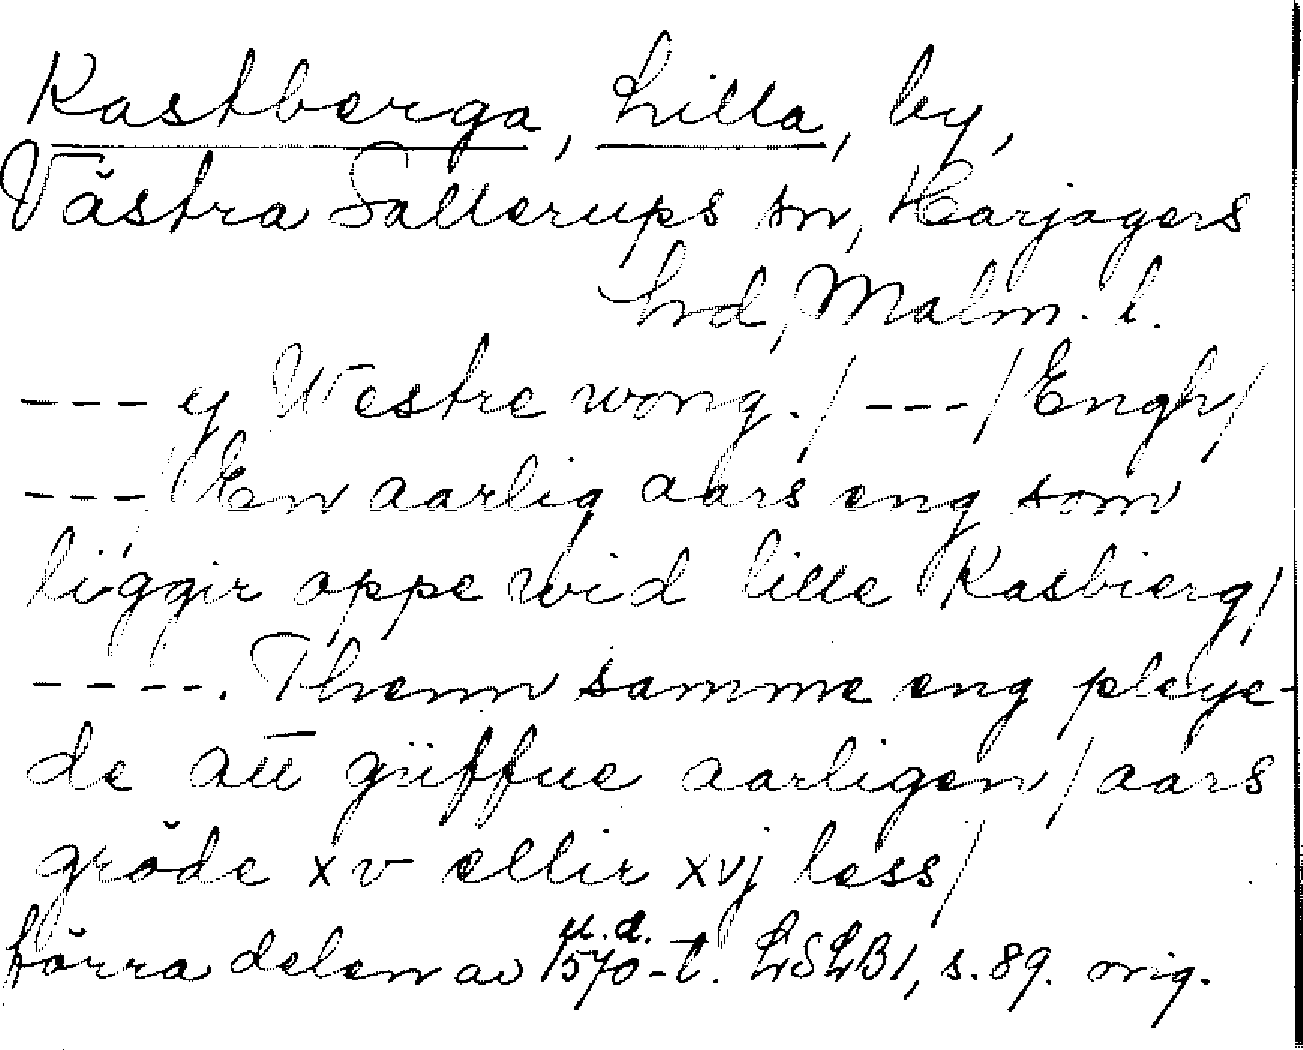 Kastberga, Lilla, by,
Västra Sallerups sn, Harjagers
hrd, Malm. l.
--- y Westre wong./ ---/Engh/
---, En aarlig aars eng som
liggir oppe wid lille Kasbierg/
----. Thenn samme eng pleye-
de att giiffue aarligen/aars
gröde xv ellir xvj less/
förra delen av 1570-t. u.d. LSLB1, s.89. orig.